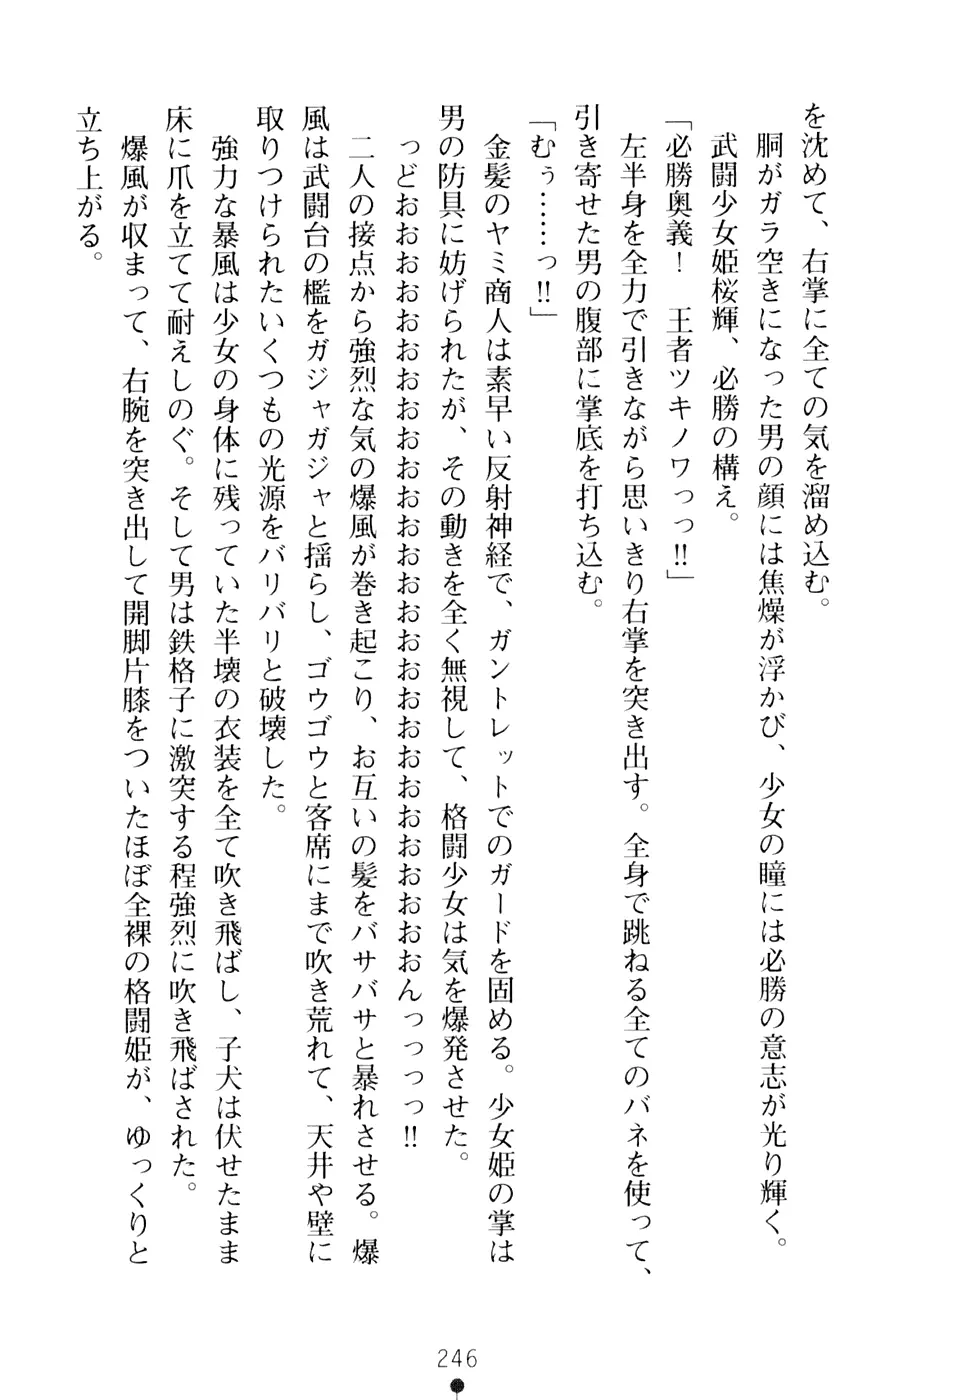 を沈めて、右掌に全ての気を溜め込む。
胴がガラ空きになった男の顔には焦燥が浮かび、少女の瞳には必勝の意志が光り輝く。
武闘少女姫桜輝、必勝の構え。
「必勝奥義！　王者ツキノワっっ‼」
左半身を全力で引きながら思いきり右掌を突き出す。全身で跳ねる全てのバネを使って、
引き寄せた男の腹部に掌底を打ち込む。
「むぅ……っ‼」
金髪のヤミ商人は素早い反射神経で、ガントレットでのガードを固める。少女姫の掌は
男の防具に妨げられたが、その動きを全く無視して、格闘少女は気を爆発させた。
っどおおおおおおおおおおおおおおおおおおおおおおおおんっっっっ‼
二人の接点から強烈な気の爆風が巻き起こり、お互いの髪をバサバサと暴れさせる。爆
風は武闘台の檻をガジャガジャと揺らし、ゴウゴウと客席にまで吹き荒れて、天井や壁に
取りつけられたいくつもの光源をバリバリと破壊した。
強力な暴風は少女の身体に残っていた半壊の衣装を全て吹き飛ばし、子犬は伏せたまま
床に爪を立てて耐えしのぐ。そして男は鉄格子に激突する程強烈に吹き飛ばされた。
爆風が収まって、右腕を突き出して開脚片膝をついたほぼ全裸の格闘姫が、ゆっくりと
立ち上がる。
246